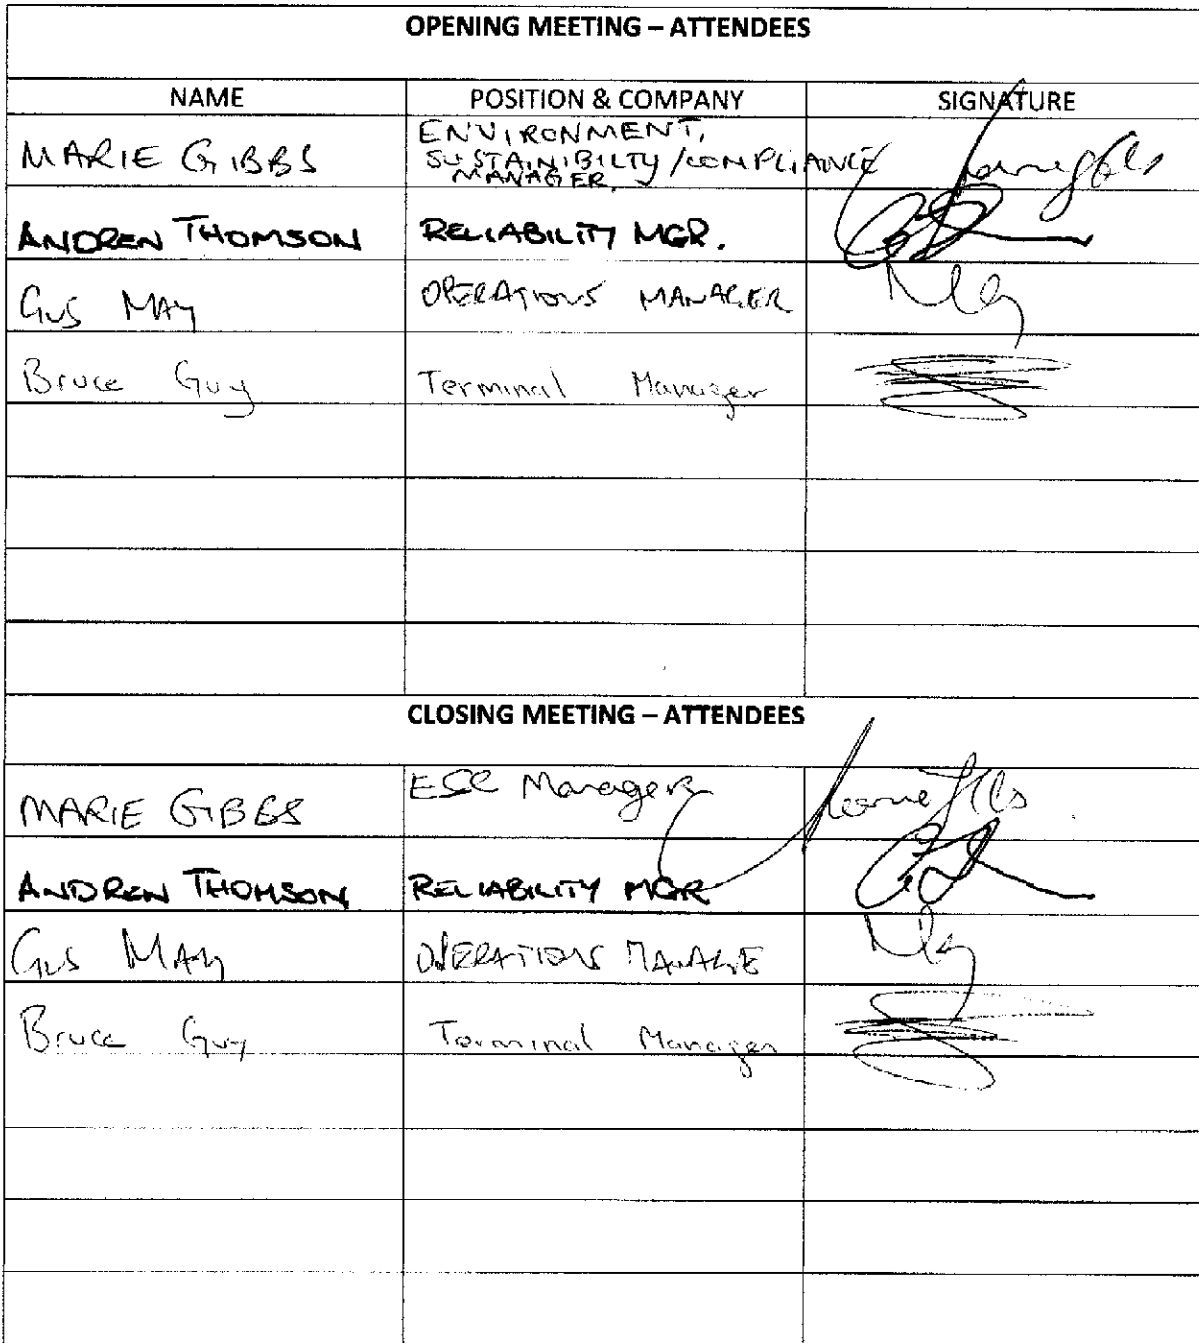 OPENING MEETING – ATTENDEES
NAME POSITION & COMPANY SIGNATURE
MARIE GIBBS ENVIRONMENT,
SUSTAINIBILTY/COMPLIANCE
MANAGER.
ANDREW THOMSON RELIABILITY MGR.
GUS MAY OPERATIONS MANAGER
Bruce Guy Terminal Manager
CLOSING MEETING – ATTENDEES
MARIE GIBBS ESC Manager
ANDREW THOMSON RELIABILITY MGR
GUS MAY OPERATIONS MANAGE
Bruce Guy Terminal Manager